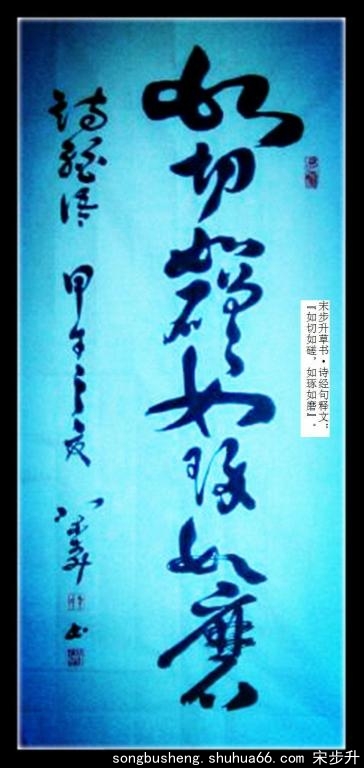 宋步升草书•诗经句释文：
『如切如磋，如琢如磨』.
如切如磋如琢如磨
詩經 甲午之夏 步升 书
songbusheng.shuhua66.com 宋步升